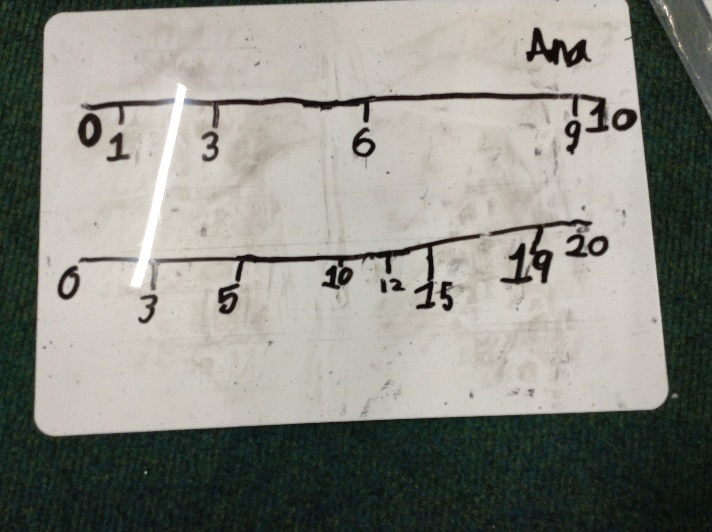 Ana
0 1 3 6 9 10
0 3 5 10 12 15 19 20